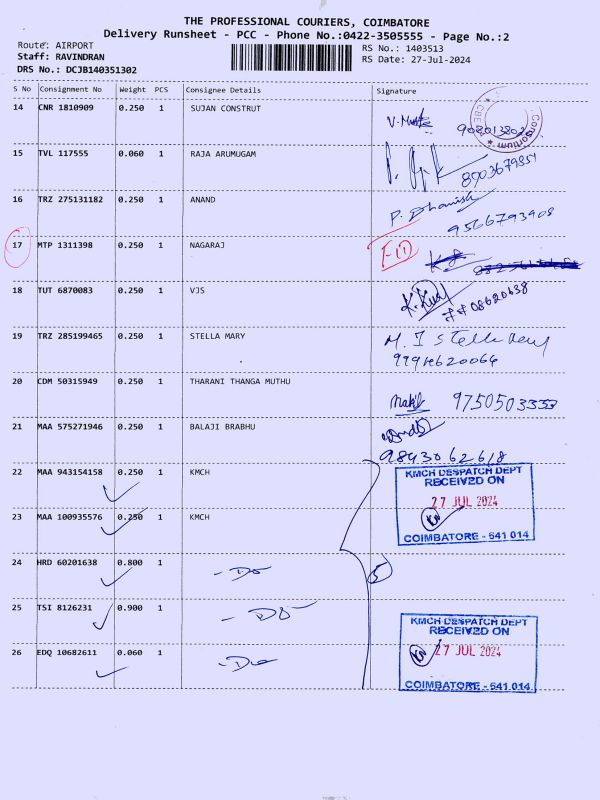 THE PROFESSIONAL COURIERS, COIMBATORE
Delivery Runsheet - PCC - Phone No.:0422-3505555 - Page No.:2
Route: AIRPORT RS No.: 1403513
Staff: RAVINDRAN RS Date: 27-Jul-2024
DRS No.: DCJB140351302
S No Consignment No Weight PCS Consignee Details Signature
14 CNR 1810909 0.250 1 SUJAN CONSTRUT
Consortium
15 TVL 117555 0.060 1 RAJA ARUMUGAM
8903679854
16 TRZ 275131182 0.250 1 ANAND P. Dhanish
9566793908
17 MTP 1311398 0.250 1 NAGARAJ
18 TUT 6870083 0.250 1 VJS
19 TRZ 285199465 0.250 1 STELLA MARY
20 CDM 50315949 0.250 1 THARANI THANGA MUTHU
9750503333
21 MAA 575271946 0.250 1 BALAJI BRABHU
9843062618
22 MAA 943154158 0.250 1 KMCH
KMCH DESPATCH DEPT
RECEIVED ON
27 JUL 2024
COIMBATORE - 641 014
23 MAA 100935576 0.250 1 KMCH
24 HRD 60201638 0.800 1 - Do
5
25 TSI 8126231 0.900 1 - Do
26 EDQ 10682611 0.060 1 - Do
KMCH DESPATCH DEPT
RECEIVED ON
27 JUL 2024
COIMBATORE - 641 014